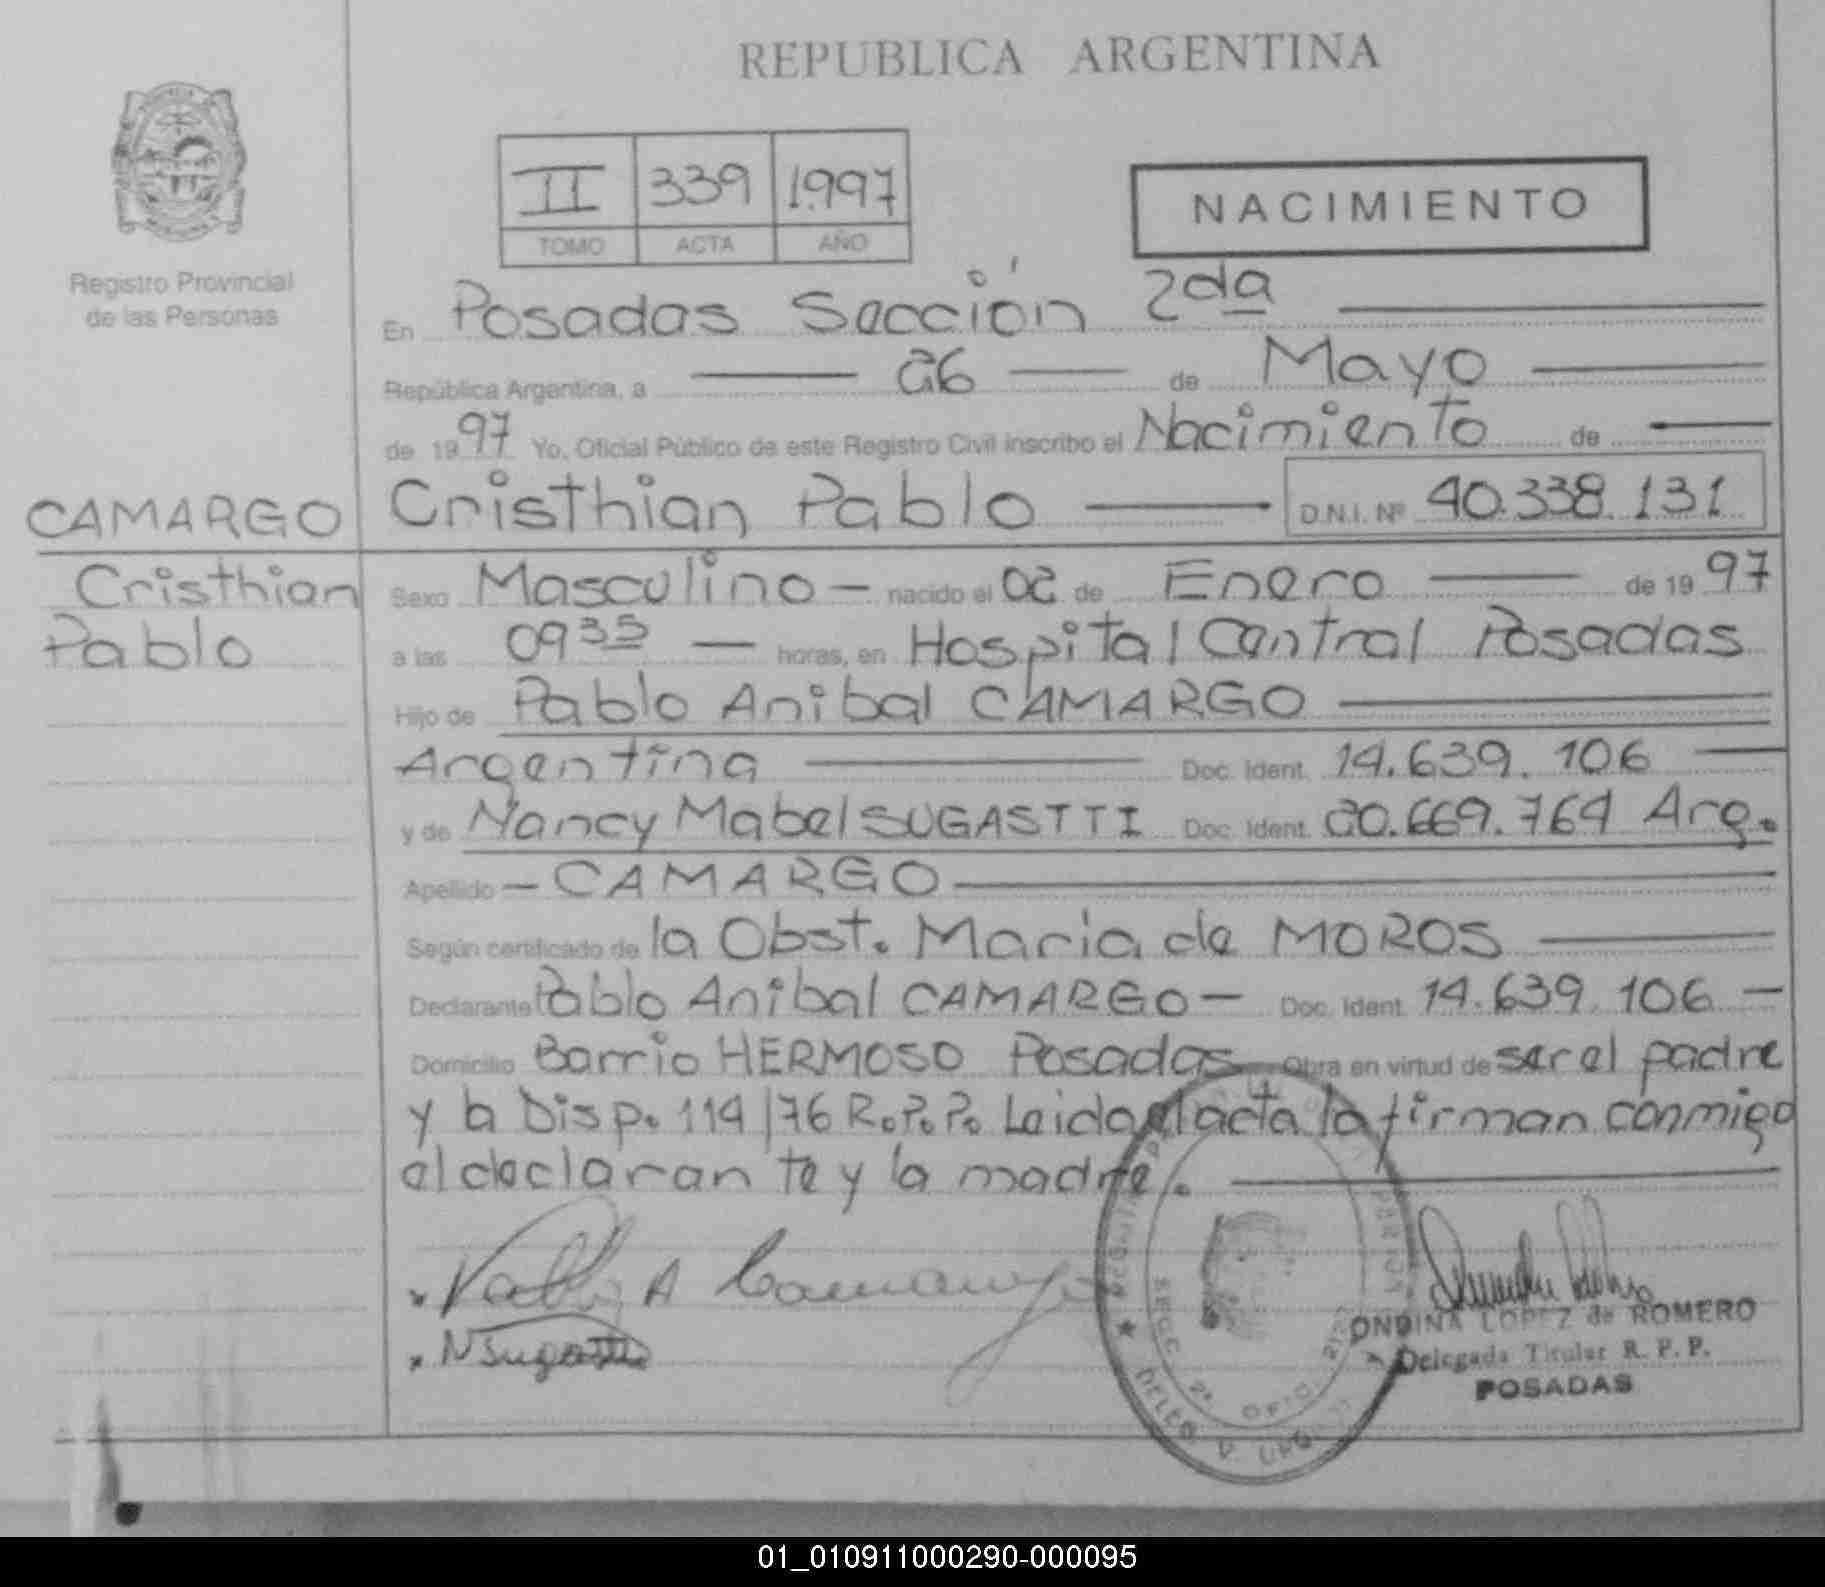 REPUBLICA ARGENTINA
II 339 1.997
TOMO ACTA AÑO
NACIMIENTO
Registro Provincial
de las Personas
En Posadas Sección 2da
República Argentina, a 26 de Mayo
de 1997 Yo, Oficial Público de este Registro Civil inscribo el Nacimiento de
CAMARGO Cristhian Pablo D.N.I. Nº 40.338.131
Cristhian Sexo Masculino nacido el 02 de Enero de 1997
Pablo a las 09 35 horas, en Hospital Central Posadas
Hijo de Pablo Anibal CAMARGO
Argentina Doc. Ident. 14.639.106
y de Nancy Mabel SUGASTTI Doc. Ident. 20.669.764 Arg.
Apellido CAMARGO
Según certificado de la Obst. Maria de MOROS
Declarante Pablo Anibal CAMARGO Doc. Ident. 14.639.106
Domicilio Barrio HERMOSO Posadas Obra en virtud de ser el padre
y la Disp. 114/76 R.P.P. Leida el acta la firman conmigo
el declarante y la madre.
Pablo A Camargo
N Sugastti
ONDINA LOPEZ de ROMERO
Delegada Titular R. P. P.
POSADAS
SECC 2ª OFIC.
01_010911000290-000095